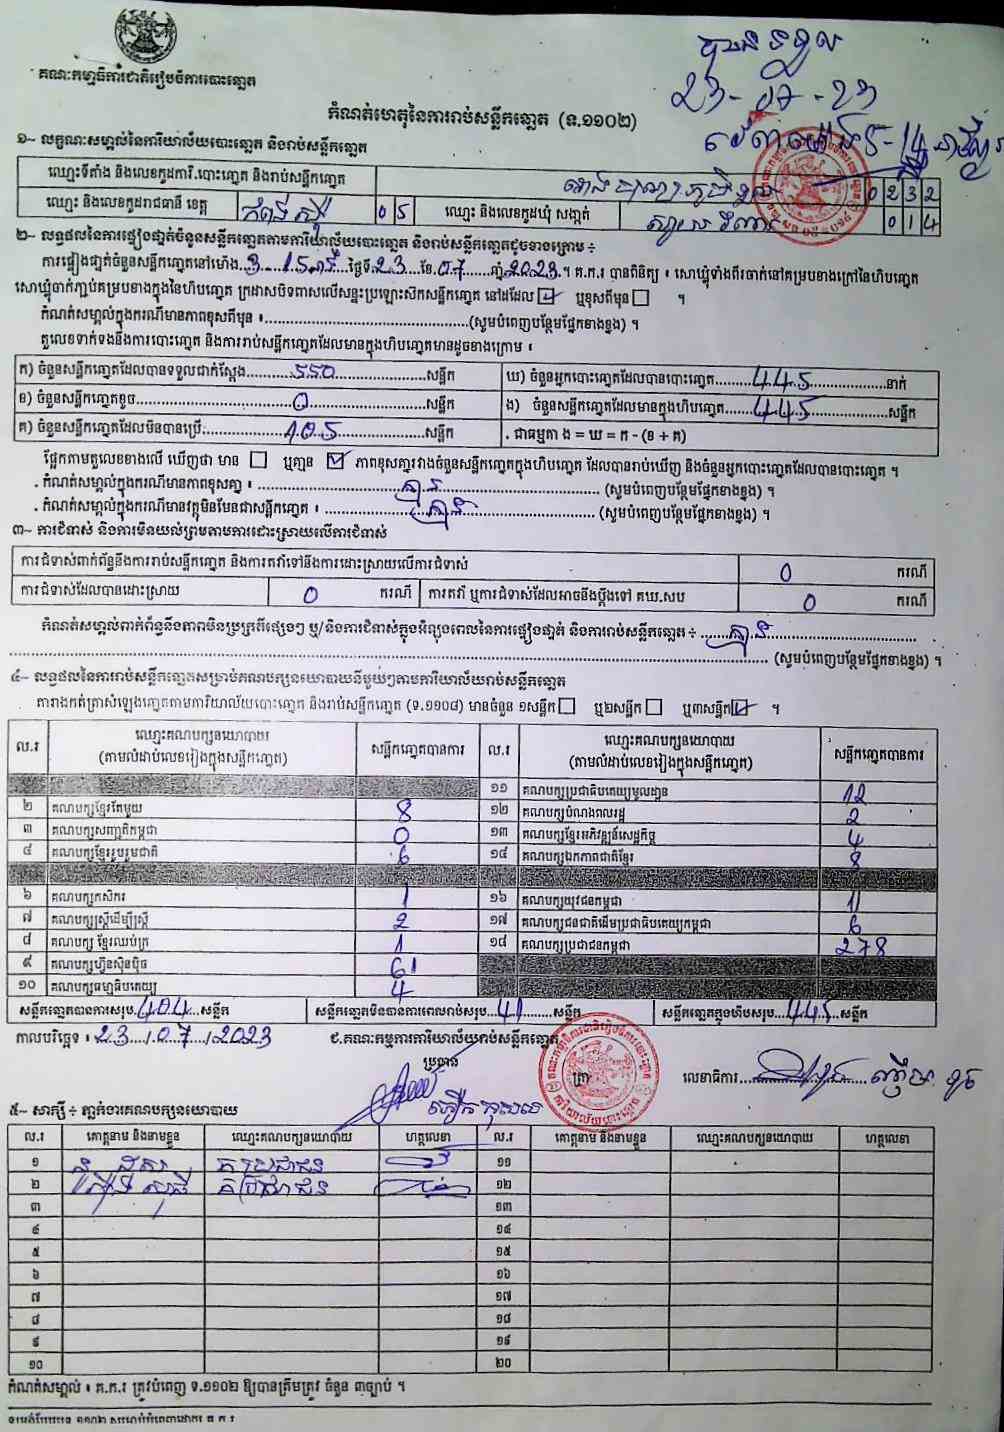 គណៈកម្មាធិការជាតិរៀបចំការបោះឆ្នោត
បានទទួល
23-07-23
កំណត់ហេតុនៃការរាប់សន្លឹកឆ្នោត (ទ.១១០២)
១- លក្ខណៈសម្គាល់នៃការិយាល័យបោះឆ្នោត និងរាប់សន្លឹកឆ្នោត
ឈ្មោះទីតាំង និងលេខកូដការិ.បោះឆ្នោត និងរាប់សន្លឹកឆ្នោត 0 2 3 2
ឈ្មោះ និងលេខកូដរាជធានី ខេត្ត កំពង់ស្ពឺ 0 5 ឈ្មោះ និងលេខកូដឃុំ សង្កាត់ 0 1 4
២- លទ្ធផលនៃការផ្ទៀងផ្ទាត់ចំនួនសន្លឹកឆ្នោតតាមការិយាល័យបោះឆ្នោត និងរាប់សន្លឹកឆ្នោតដូចខាងក្រោម ÷
ការផ្ទៀងផ្ទាត់ចំនួនសន្លឹកឆ្នោតនៅម៉ោង 3 15 នាទី ថ្ងៃទី 23 ខែ 07 ឆ្នាំ 2023 ។ គ.ក.រ បានពិនិត្យ ៖ សោឃ្លុំទាំងពីរចាក់នៅគម្របខាងក្រៅនៃហិបឆ្នោត
សោឃ្លុំចាក់ភ្ជាប់គម្របខាងក្នុងនៃហិបឆ្នោត ក្រដាសបិទពាសលើសន្ទះប្រឡោះសឹកសន្លឹកឆ្នោត នៅដដែល ☑ ឬខុសពីមុន ☐ ។
កំណត់សម្គាល់ក្នុងករណីមានភាពខុសពីមុន ៖ (សូមបំពេញបន្ថែមផ្នែកខាងខ្នង) ។
តួលេខទាក់ទងនឹងការបោះឆ្នោត និងការរាប់សន្លឹកឆ្នោតដែលមានក្នុងហិបឆ្នោតមានដូចខាងក្រោម ៖
ក) ចំនួនសន្លឹកឆ្នោតដែលបានទទួលជាក់ស្តែង 550 សន្លឹក ឃ) ចំនួនអ្នកបោះឆ្នោតដែលបានបោះឆ្នោត 445 នាក់
ខ) ចំនួនសន្លឹកឆ្នោតខូច 0 សន្លឹក ង) ចំនួនសន្លឹកឆ្នោតដែលមានក្នុងហិបឆ្នោត 445 សន្លឹក
គ) ចំនួនសន្លឹកឆ្នោតដែលមិនបានប្រើ 105 សន្លឹក . ជាធម្មតា ង = ឃ = ក - (ខ + គ)
ផ្អែកតាមតួលេខខាងលើ ឃើញថា មាន ☐ ឬគ្មាន ☑ ភាពខុសគ្នារវាងចំនួនសន្លឹកឆ្នោតក្នុងហិបឆ្នោត ដែលបានរាប់ឃើញ និងចំនួនអ្នកបោះឆ្នោតដែលបានបោះឆ្នោត ។
. កំណត់សម្គាល់ក្នុងករណីមានភាពខុសគ្នា ៖ គ្មាន (សូមបំពេញបន្ថែមផ្នែកខាងខ្នង) ។
. កំណត់សម្គាល់ក្នុងករណីមានវត្ថុមិនមែនជាសន្លឹកឆ្នោត ៖ គ្មាន (សូមបំពេញបន្ថែមផ្នែកខាងខ្នង) ។
៣- ការជំទាស់ និងការមិនយល់ព្រមតាមការដោះស្រាយលើការជំទាស់
ការជំទាស់ពាក់ព័ន្ធនឹងការរាប់សន្លឹកឆ្នោត និងការតវ៉ាទៅនឹងការដោះស្រាយលើការជំទាស់ 0 ករណី
ការជំទាស់ដែលបានដោះស្រាយ 0 ករណី ការតវ៉ា ឬការជំទាស់ដែលអាចនឹងប្តឹងទៅ គឃ.សប 0 ករណី
កំណត់សម្គាល់ពាក់ព័ន្ធនឹងភាពមិនប្រក្រតីផ្សេងៗ ឬ/និងការជំទាស់ក្នុងអំឡុងពេលនៃការផ្ទៀងផ្ទាត់ និងការរាប់សន្លឹកឆ្នោត ÷ គ្មាន
(សូមបំពេញបន្ថែមផ្នែកខាងខ្នង) ។
៤- លទ្ធផលនៃការរាប់សន្លឹកឆ្នោតសម្រាប់គណបក្សនយោបាយនីមួយៗតាមការិយាល័យរាប់សន្លឹកឆ្នោត
តារាងកត់ត្រាសំឡេងឆ្នោតតាមការិយាល័យបោះឆ្នោត និងរាប់សន្លឹកឆ្នោត (ទ.១១០៨) មានចំនួន ១សន្លឹក ☐ ឬ២សន្លឹក ☐ ឬ៣សន្លឹក ☑ ។
ល.រ ឈ្មោះគណបក្សនយោបាយ (តាមលំដាប់លេខរៀងក្នុងសន្លឹកឆ្នោត) សន្លឹកឆ្នោតបានការ ល.រ ឈ្មោះគណបក្សនយោបាយ (តាមលំដាប់លេខរៀងក្នុងសន្លឹកឆ្នោត) សន្លឹកឆ្នោតបានការ
១១ គណបក្សប្រជាធិបតេយ្យមូលដ្ឋាន 12
២ គណបក្សខ្មែរតែមួយ 8 ១២ គណបក្សបំណងពលរដ្ឋ 2
៣ គណបក្សសញ្ជាតិកម្ពុជា 0 ១៣ គណបក្សខ្មែរអភិវឌ្ឍន៍សេដ្ឋកិច្ច 4
៤ គណបក្សខ្មែររួបរួមជាតិ 6 ១៤ គណបក្សឯកភាពជាតិខ្មែរ 8
៦ គណបក្សកសិករ 1 ១៦ គណបក្សយុវជនកម្ពុជា 11
៧ គណបក្សស្ត្រីដើម្បីស្ត្រី 2 ១៧ គណបក្សជនជាតិដើមប្រជាធិបតេយ្យកម្ពុជា 6
៨ គណបក្ស ខ្មែរឈប់ក្រ 1 ១៨ គណបក្សប្រជាជនកម្ពុជា 278
៩ គណបក្សហ៊្វុនស៊ិនប៉ិច 61
១០ គណបក្សធម្មាធិបតេយ្យ 4
សន្លឹកឆ្នោតបានការសរុប 404 សន្លឹក សន្លឹកឆ្នោតមិនបានការពេលរាប់សរុប 41 សន្លឹក សន្លឹកឆ្នោតក្នុងហិបសរុប 445 សន្លឹក
កាលបរិច្ឆេទ ៖ 23/07/2023 ជ.គណៈកម្មការការិយាល័យរាប់សន្លឹកឆ្នោត
ប្រធាន ត្រា លេខាធិការ
៥- សាក្សី ÷ ភ្នាក់ងារគណបក្សនយោបាយ
ល.រ គោត្តនាម និងនាមខ្លួន ឈ្មោះគណបក្សនយោបាយ ហត្ថលេខា ល.រ គោត្តនាម និងនាមខ្លួន ឈ្មោះគណបក្សនយោបាយ ហត្ថលេខា
១ គ ប្រជាជន ១១
២ គ ប្រជាជន ១២
៣ ១៣
៤ ១៤
៥ ១៥
៦ ១៦
៧ ១៧
៨ ១៨
៩ ១៩
១០ ២០
កំណត់សម្គាល់ ៖ គ.ក.រ ត្រូវបំពេញ ទ.១១០២ ឱ្យបានត្រឹមត្រូវ ចំនួន ៣ច្បាប់ ។